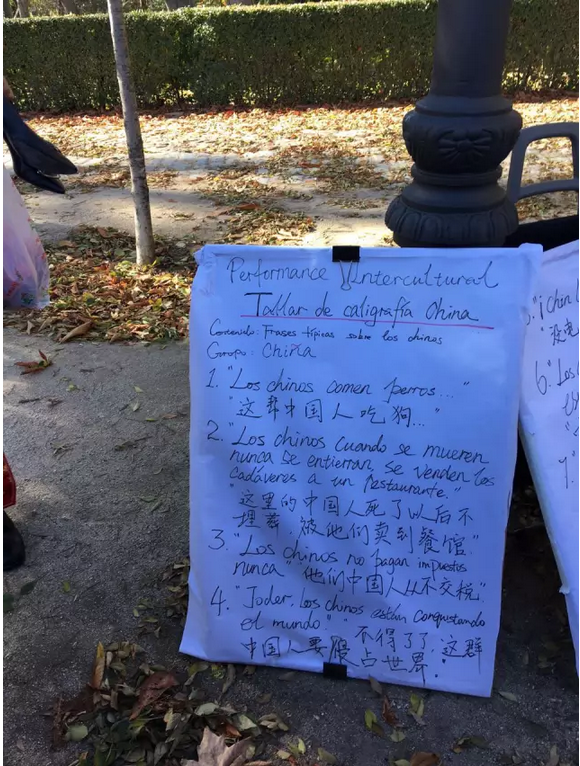 Performance Intercultural
Tallar de caligrafía China
Contenido: Frases típicas sobre los chinos
Gurupo: China
1. "Los chinos comen perros..."
"这帮中国人吃狗..."
2. "Los chinos cuando se mueren
nunca se entierran, se venden los
cadáveres a un restaurante."
"这里的中国人死了以后不
埋葬,被他们卖到餐馆."
3. "Los chinos no pagan impuestos
nunca" "他们中国人从不交税"
4. "Joder, los chinos están conquistando
el mundo" "不得了了,这群
中国人要霸占世界."
"¡Chin
"没电
6. "Los